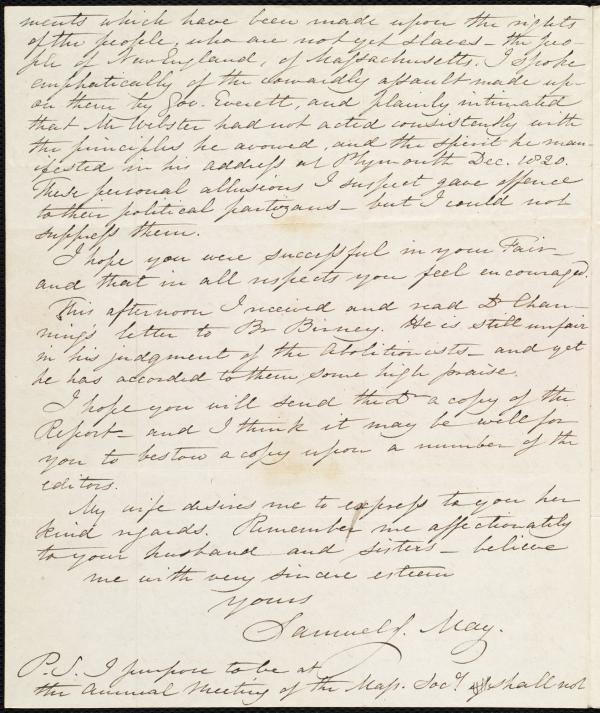 ments which have been made upon the rights
of the people, who are not yet slaves - the peo-
ple of New England, of Massachusetts. I spoke
emphatically of the cowardly assault made up-
on them by Gov. Everett, and plainly intimated
that Mr Webster had not acted consistently with
the principles he avowed, and the spirit he man-
ifested in his address at Plymouth Dec. 1820.
These personal allusions I suspect gave offence
to their political partizans - but I could not
suppress them.
I hope you were successful in your Fair -
and that in all respects you feel encouraged.
This afternoon I received and read Dr Chan-
ning's letter to Br Birney. He is still unfair
in his judgment of the Abolitionists - and yet
he has accorded to them some high praise.
I hope you will send the Dr a copy of the
Report - and I think it may be well for
you to bestow a copy upon a number of the
editors.
My wife desires me to express to you her
kind regards. Remember me affectionately
to your husband and sisters - believe
me with very sincere esteem
yours
Samuel J. May.
P.S. I purpose to be at
the annual meeting of the Mass. Socy shall not